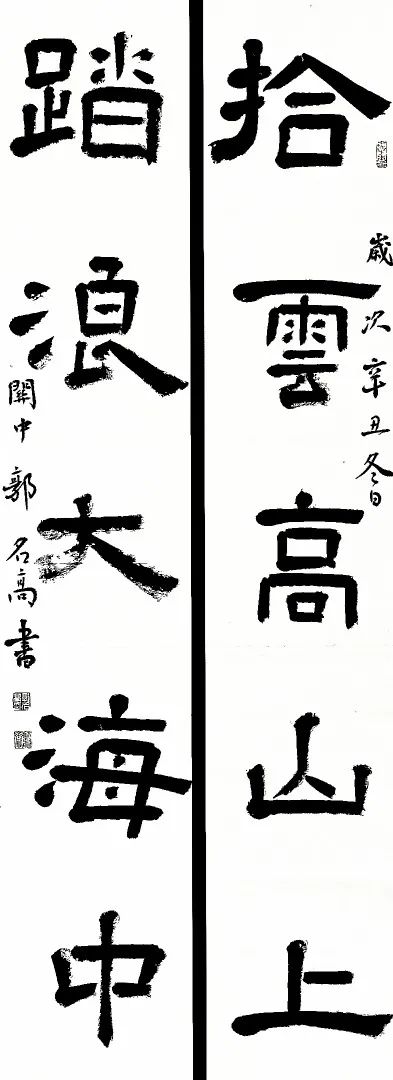 拾雲高山上
歳次辛丑冬日
踏浪大海中
關中郭名高書